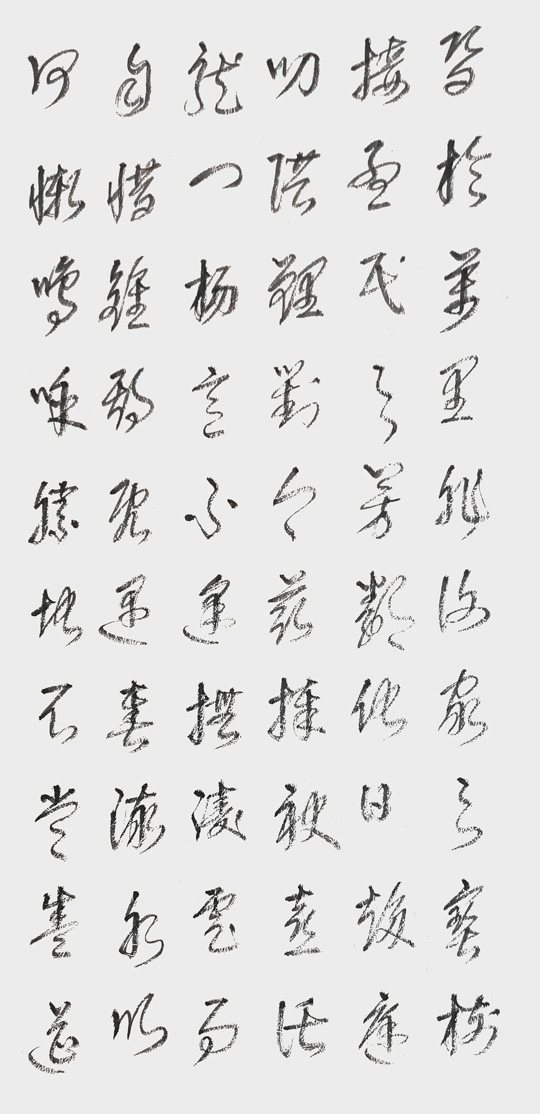 昏於萬里非謝家之寶樹
接孟氏之芳鄰他日趨庭
叨陪鯉對今茲捧袂喜託
龍門楊意不逢撫凌雲而
自惜鍾期既遇奏流水以
何慚嗚呼勝地不常盛筵